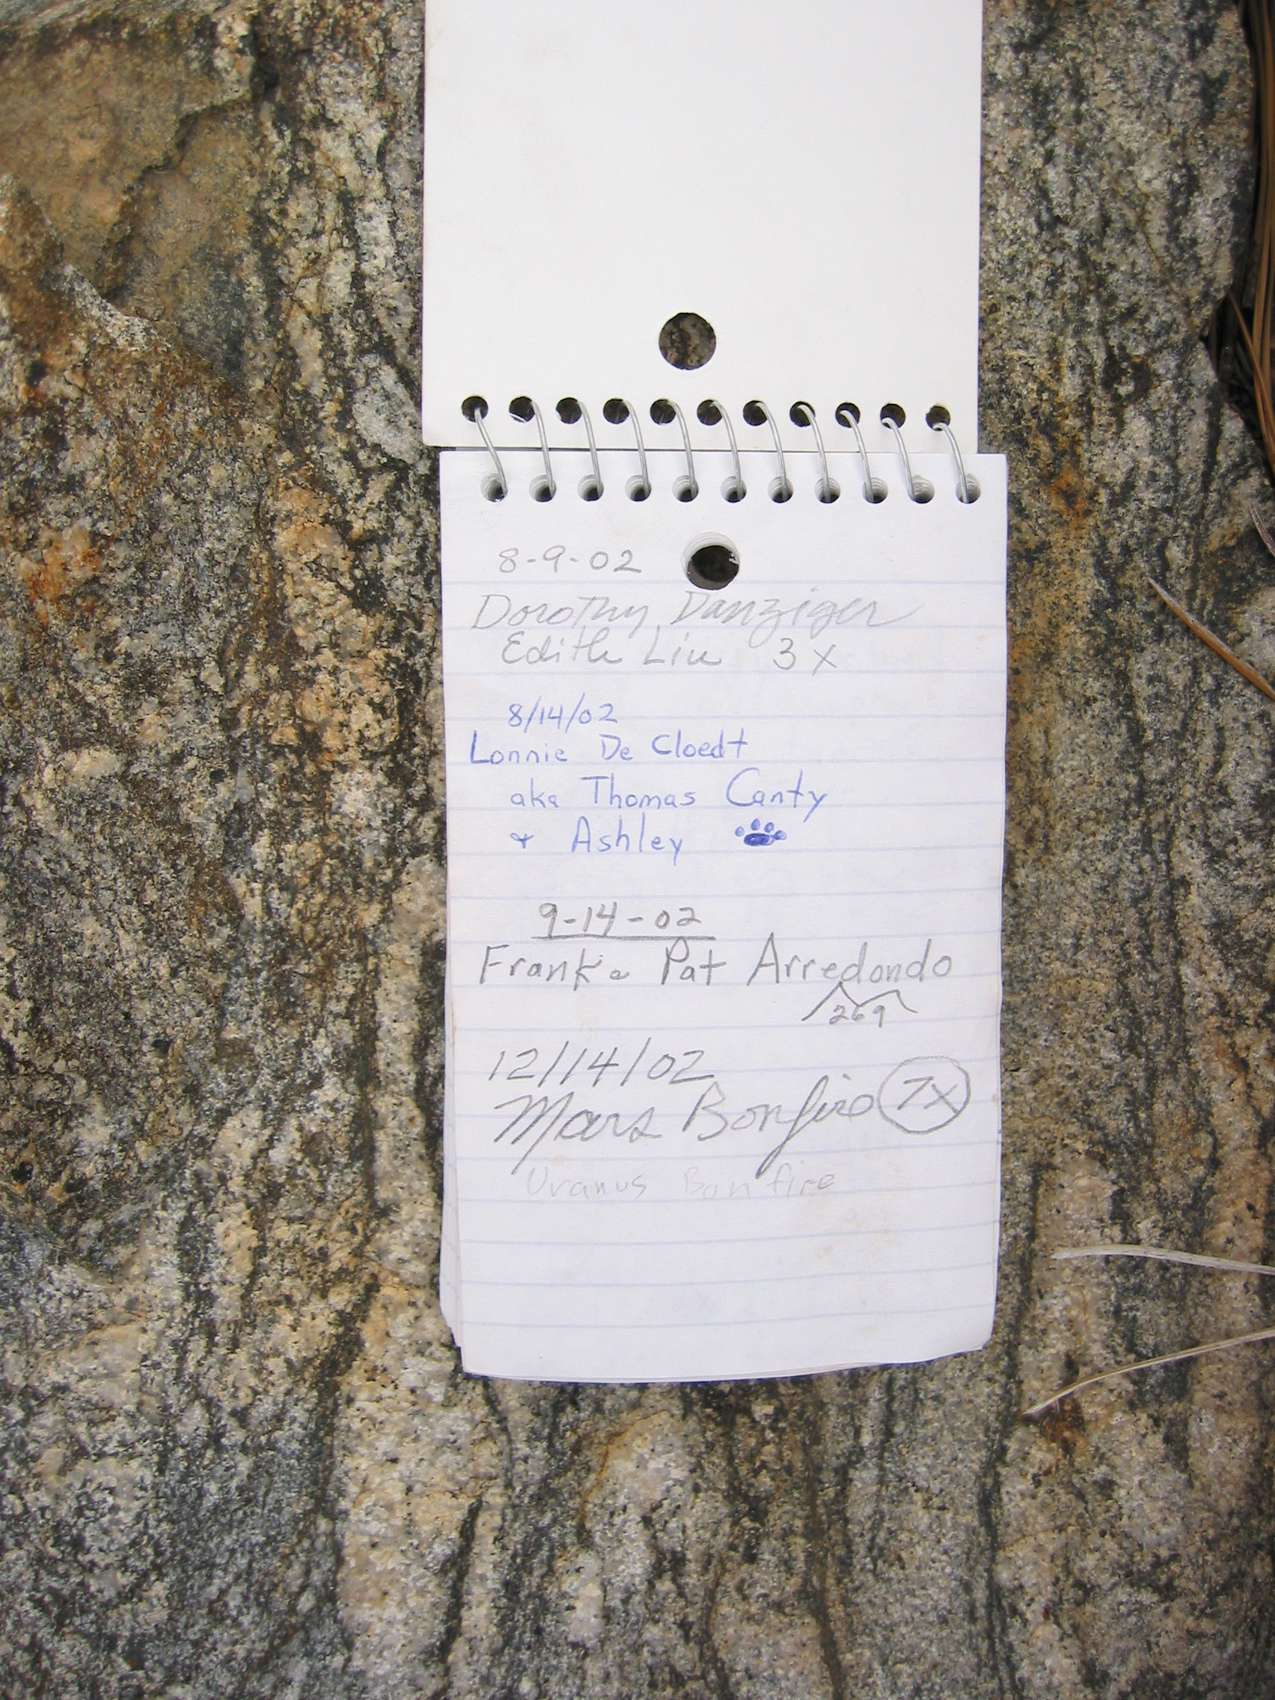 8-9-02
Dorothy Danziger
Edith Liu 3X
8/14/02
Lonnie De Cloedt
aka Thomas Canty
+ Ashley
9-14-02
Frank & Pat Arredondo
269
12/14/02
Mars Bonfire 7X
Uranus Bonfire